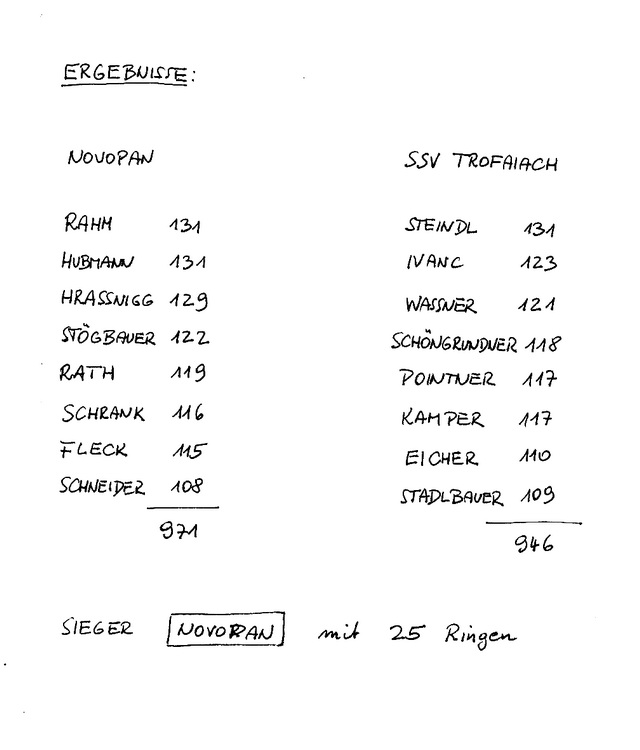 ERGEBNISSE:
NOVOPAN SSV TROFAIACH
RAHM 131 STEINDL 131
HUBMANN 131 IVANC 123
HRASSNIGG 129 WASSNER 121
STÖGBAUER 122 SCHÖNGRUNDNER 118
RATH 119 POINTNER 117
SCHRANK 116 KAMPER 117
FLECK 115 EICHER 110
SCHNEIDER 108 STADLBAUER 109
971 946
SIEGER NOVOPAN mit 25 Ringen